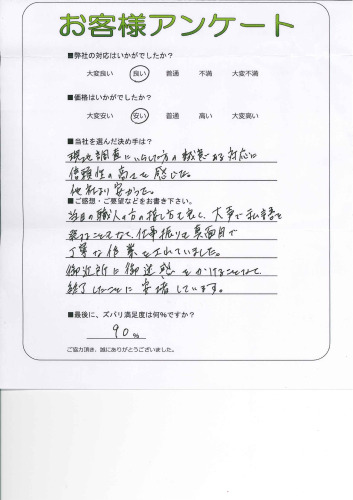 お客様アンケート
■弊社の対応はいかがでしたか？
大変良い 良い 普通 不満 大変不満
■価格はいかがでしたか？
大変安い 安い 普通 高い 大変高い
■当社を選んだ決め手は？
現地調査にいらした方の誠意ある対応に
信頼性の高さを感じた。
他社より安かった。
■ご感想・ご要望などをお書き下さい。
当日の職人の方の接し方も良く、大声で私語を
することもなく、仕事振りも真面目で
丁寧な作業をされていました。
御近所に御迷惑をかけることなく
終了したことに安堵しています。
■最後に、ズバリ満足度は何％ですか？
90％
ご協力頂き、誠にありがとうございました。